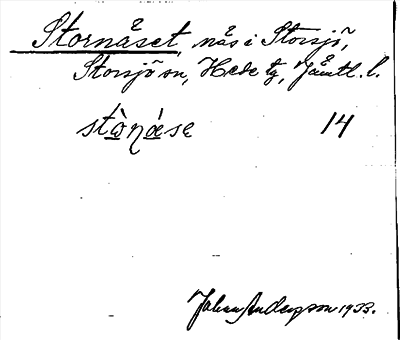 Stornäset, näs i Storsjö,
Storsjö sn, Hede tg, Jämtl. l.
stὼnάse 14
Johan Anderson 1933.